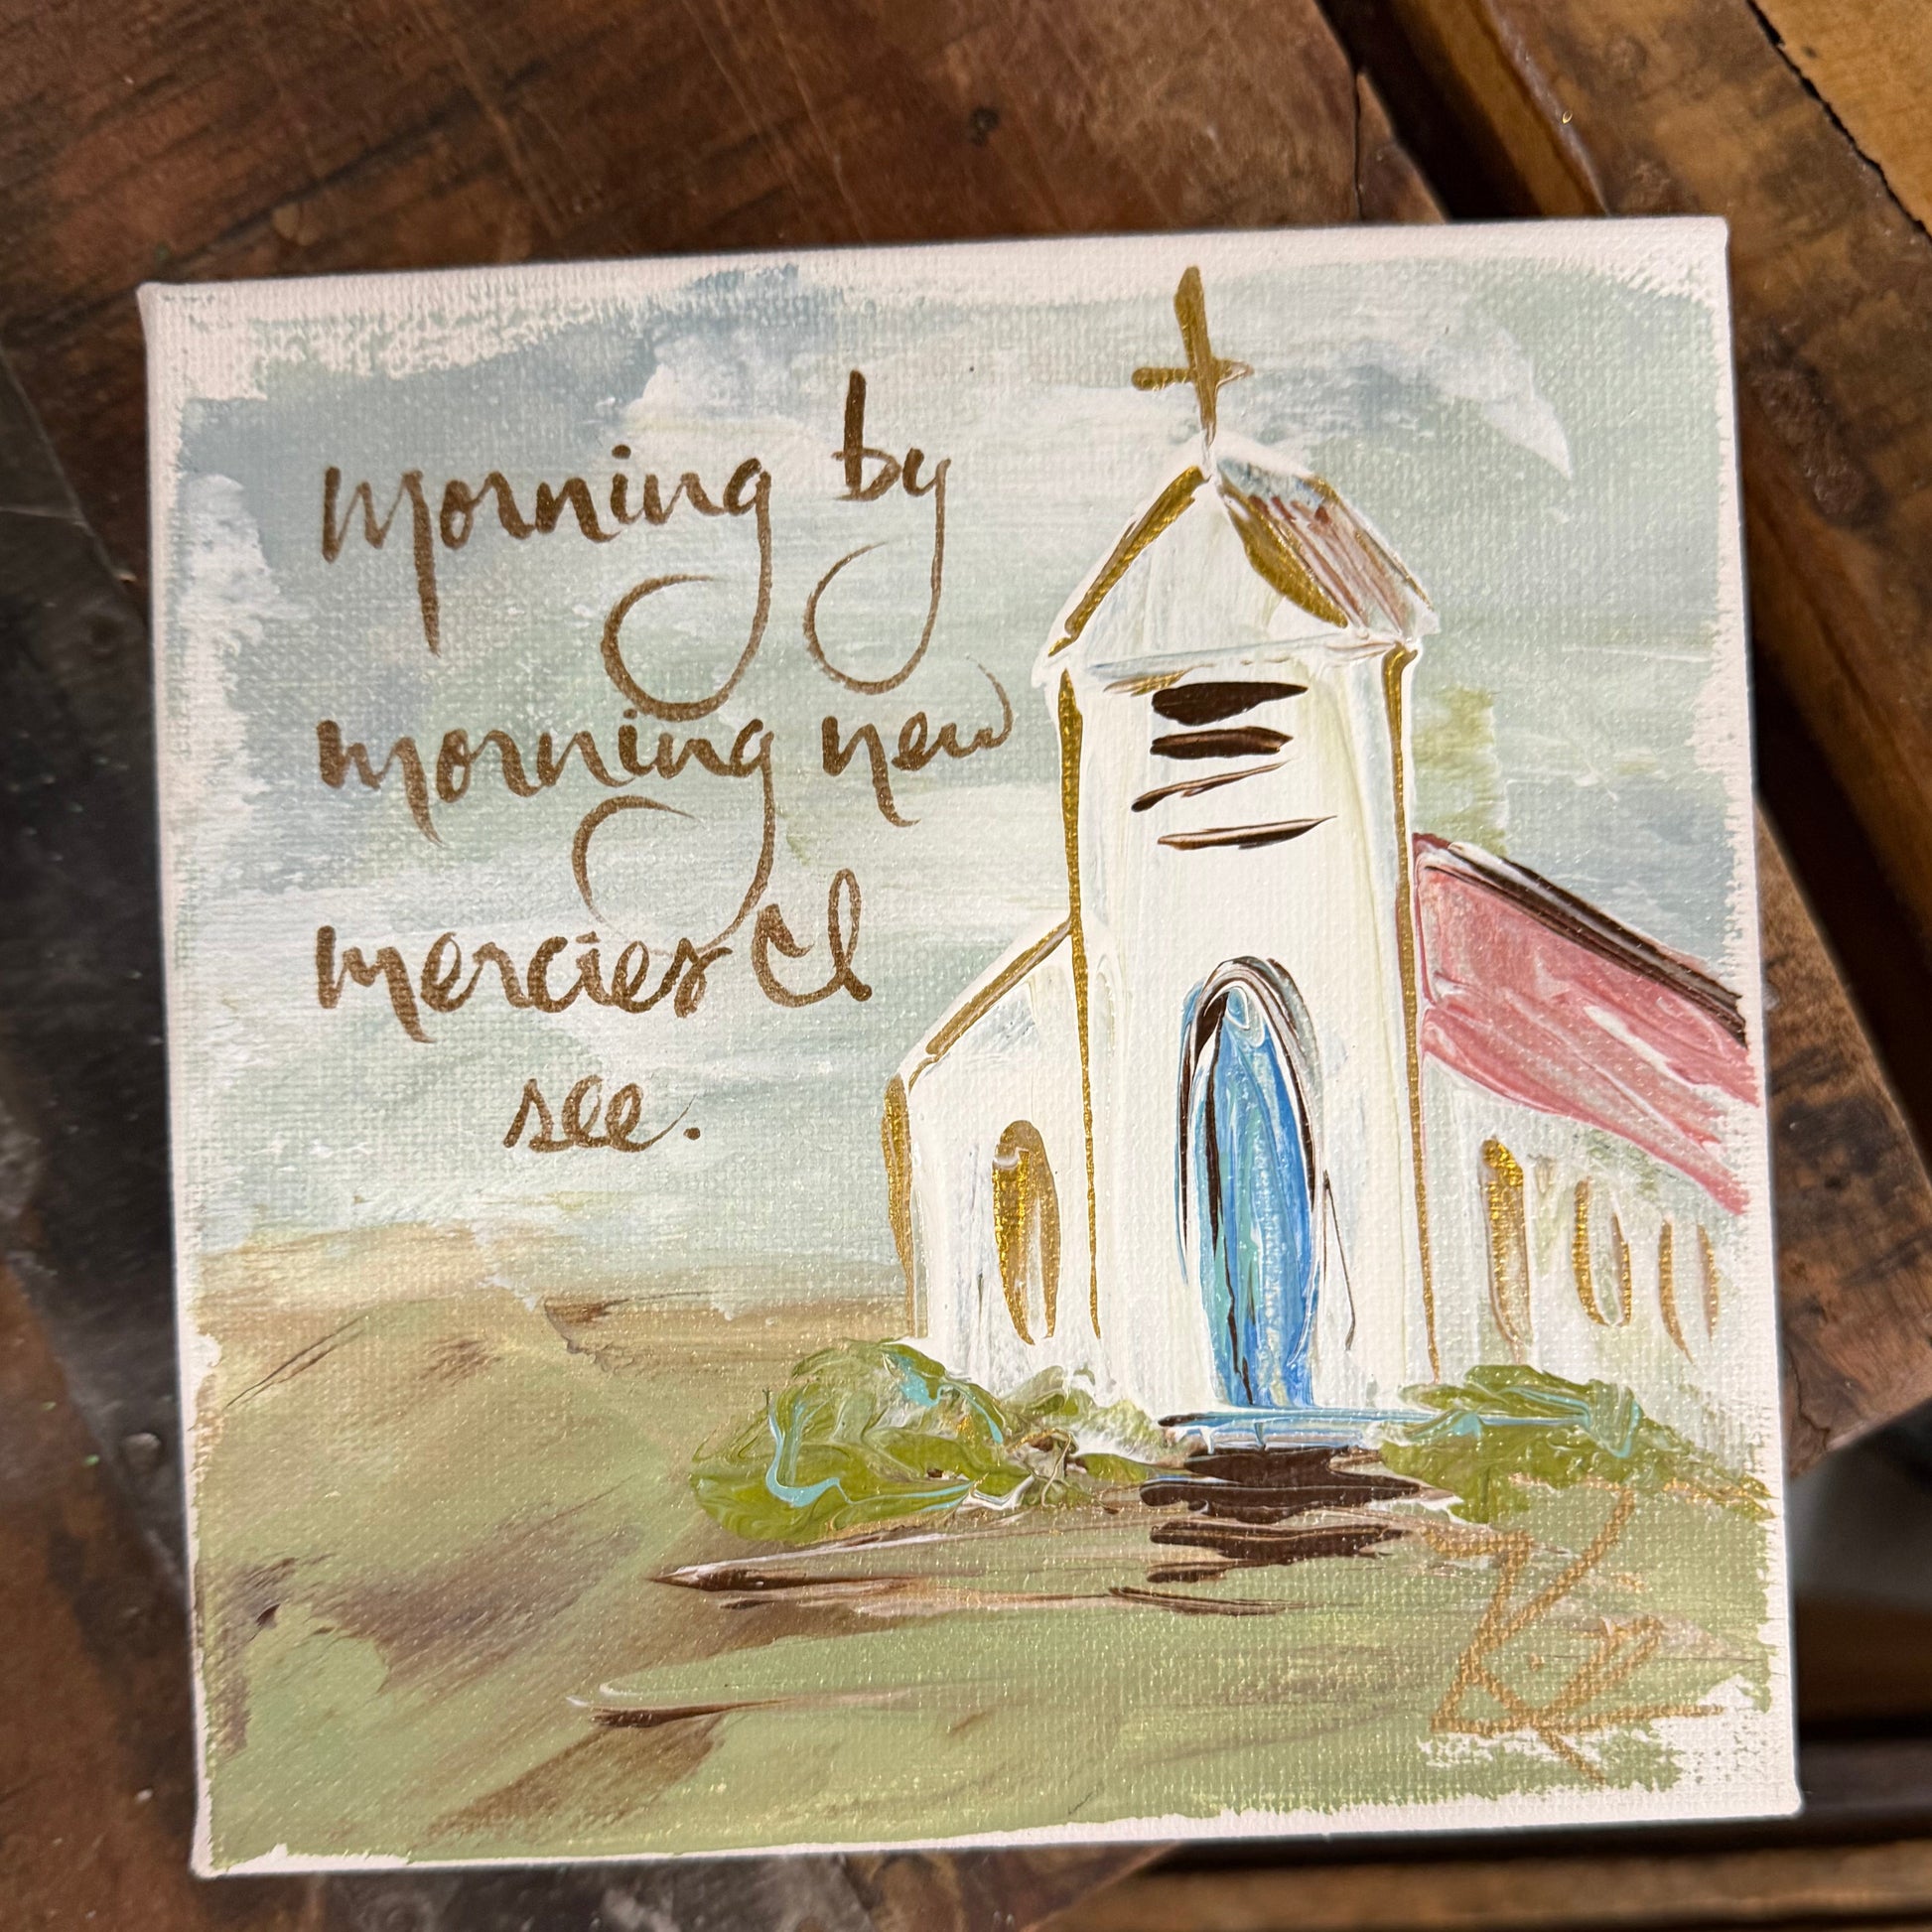 morning by
morning new
mercies I
see.